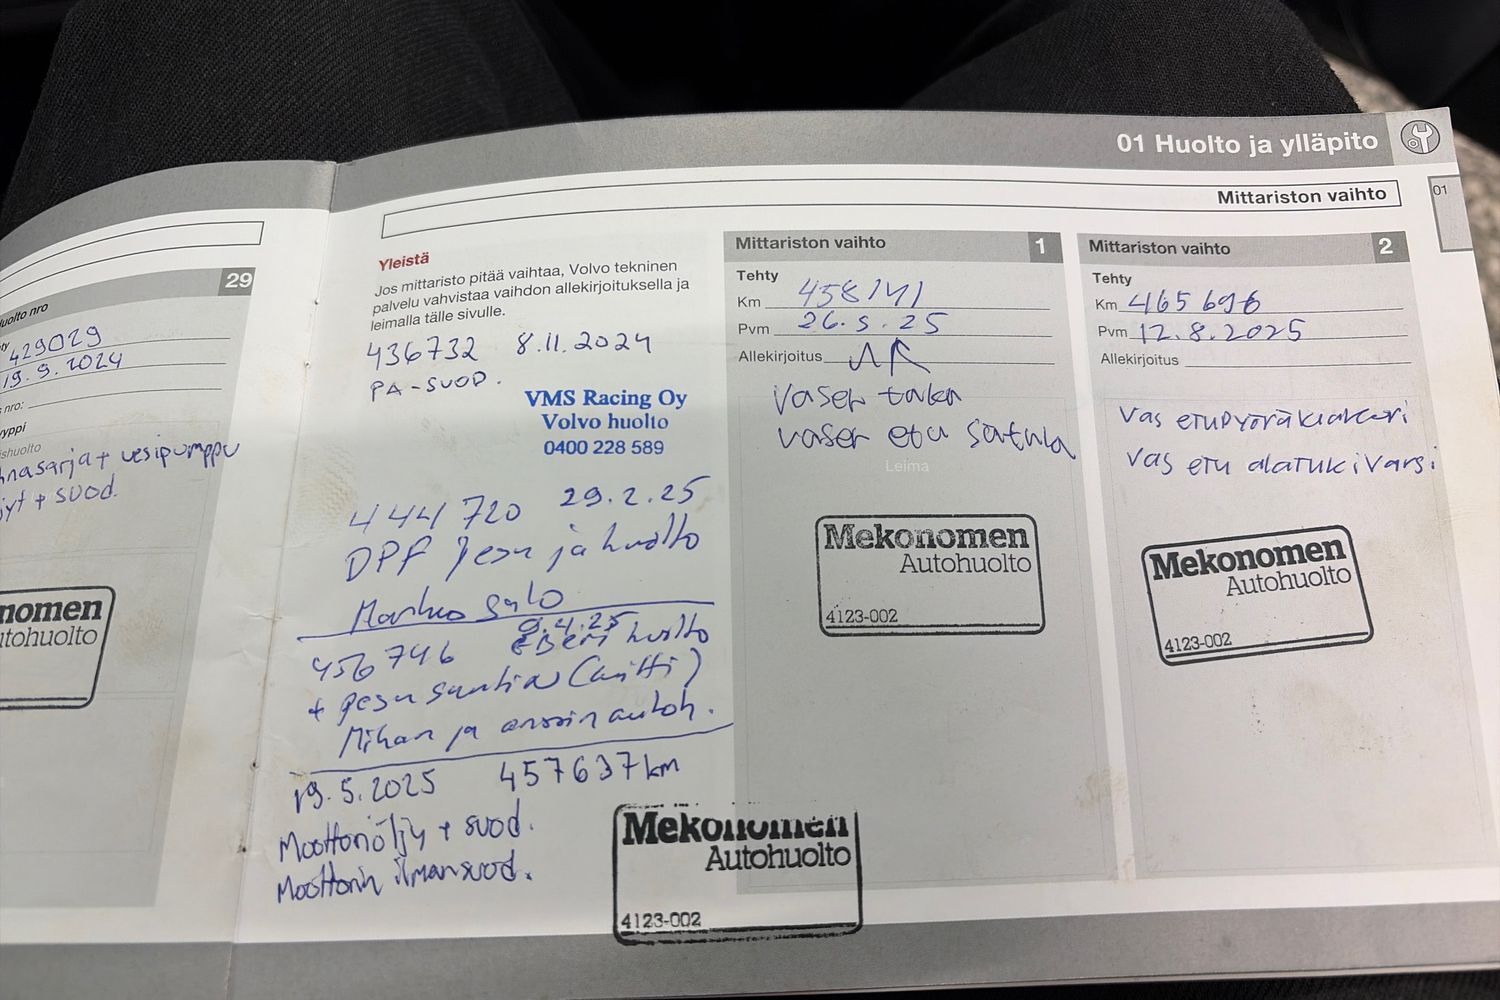 01 Huolto ja ylläpito
Mittariston vaihto
01
29
uolto nro
429029
19.9.2024
s nro:
yyppi
ishuolto
hnasarja + vesipumppu
jyt + suod.
nomen
utohuolto
Yleistä
Jos mittaristo pitää vaihtaa, Volvo tekninen
palvelu vahvistaa vaihdon allekirjoituksella ja
leimalla tälle sivulle.
436732 8.11.2024
PA-SUOD.
VMS Racing Oy
Volvo huolto
0400 228 589
444720 29.2.25
DPF Pesu ja huolto
Markus Salo
9.4.25
456746 huolto
+ pesu
Mikan ja autoh.
19.5.2025 457637km
Moottoriöljy + suod.
Moottorin ilmansuod.
Mekonomen
Autohuolto
4123-002
Mittariston vaihto 1
Tehty
Km 458141
Pvm 26.5.25
Allekirjoitus
Vasen taka
vasen etu satula
Leima
Mekonomen
Autohuolto
4123-002
Mittariston vaihto 2
Tehty
Km 465696
Pvm 12.8.2025
Allekirjoitus
Vas etupyöränlaakeri
Vas etu alatukivarsi
Mekonomen
Autohuolto
4123-002